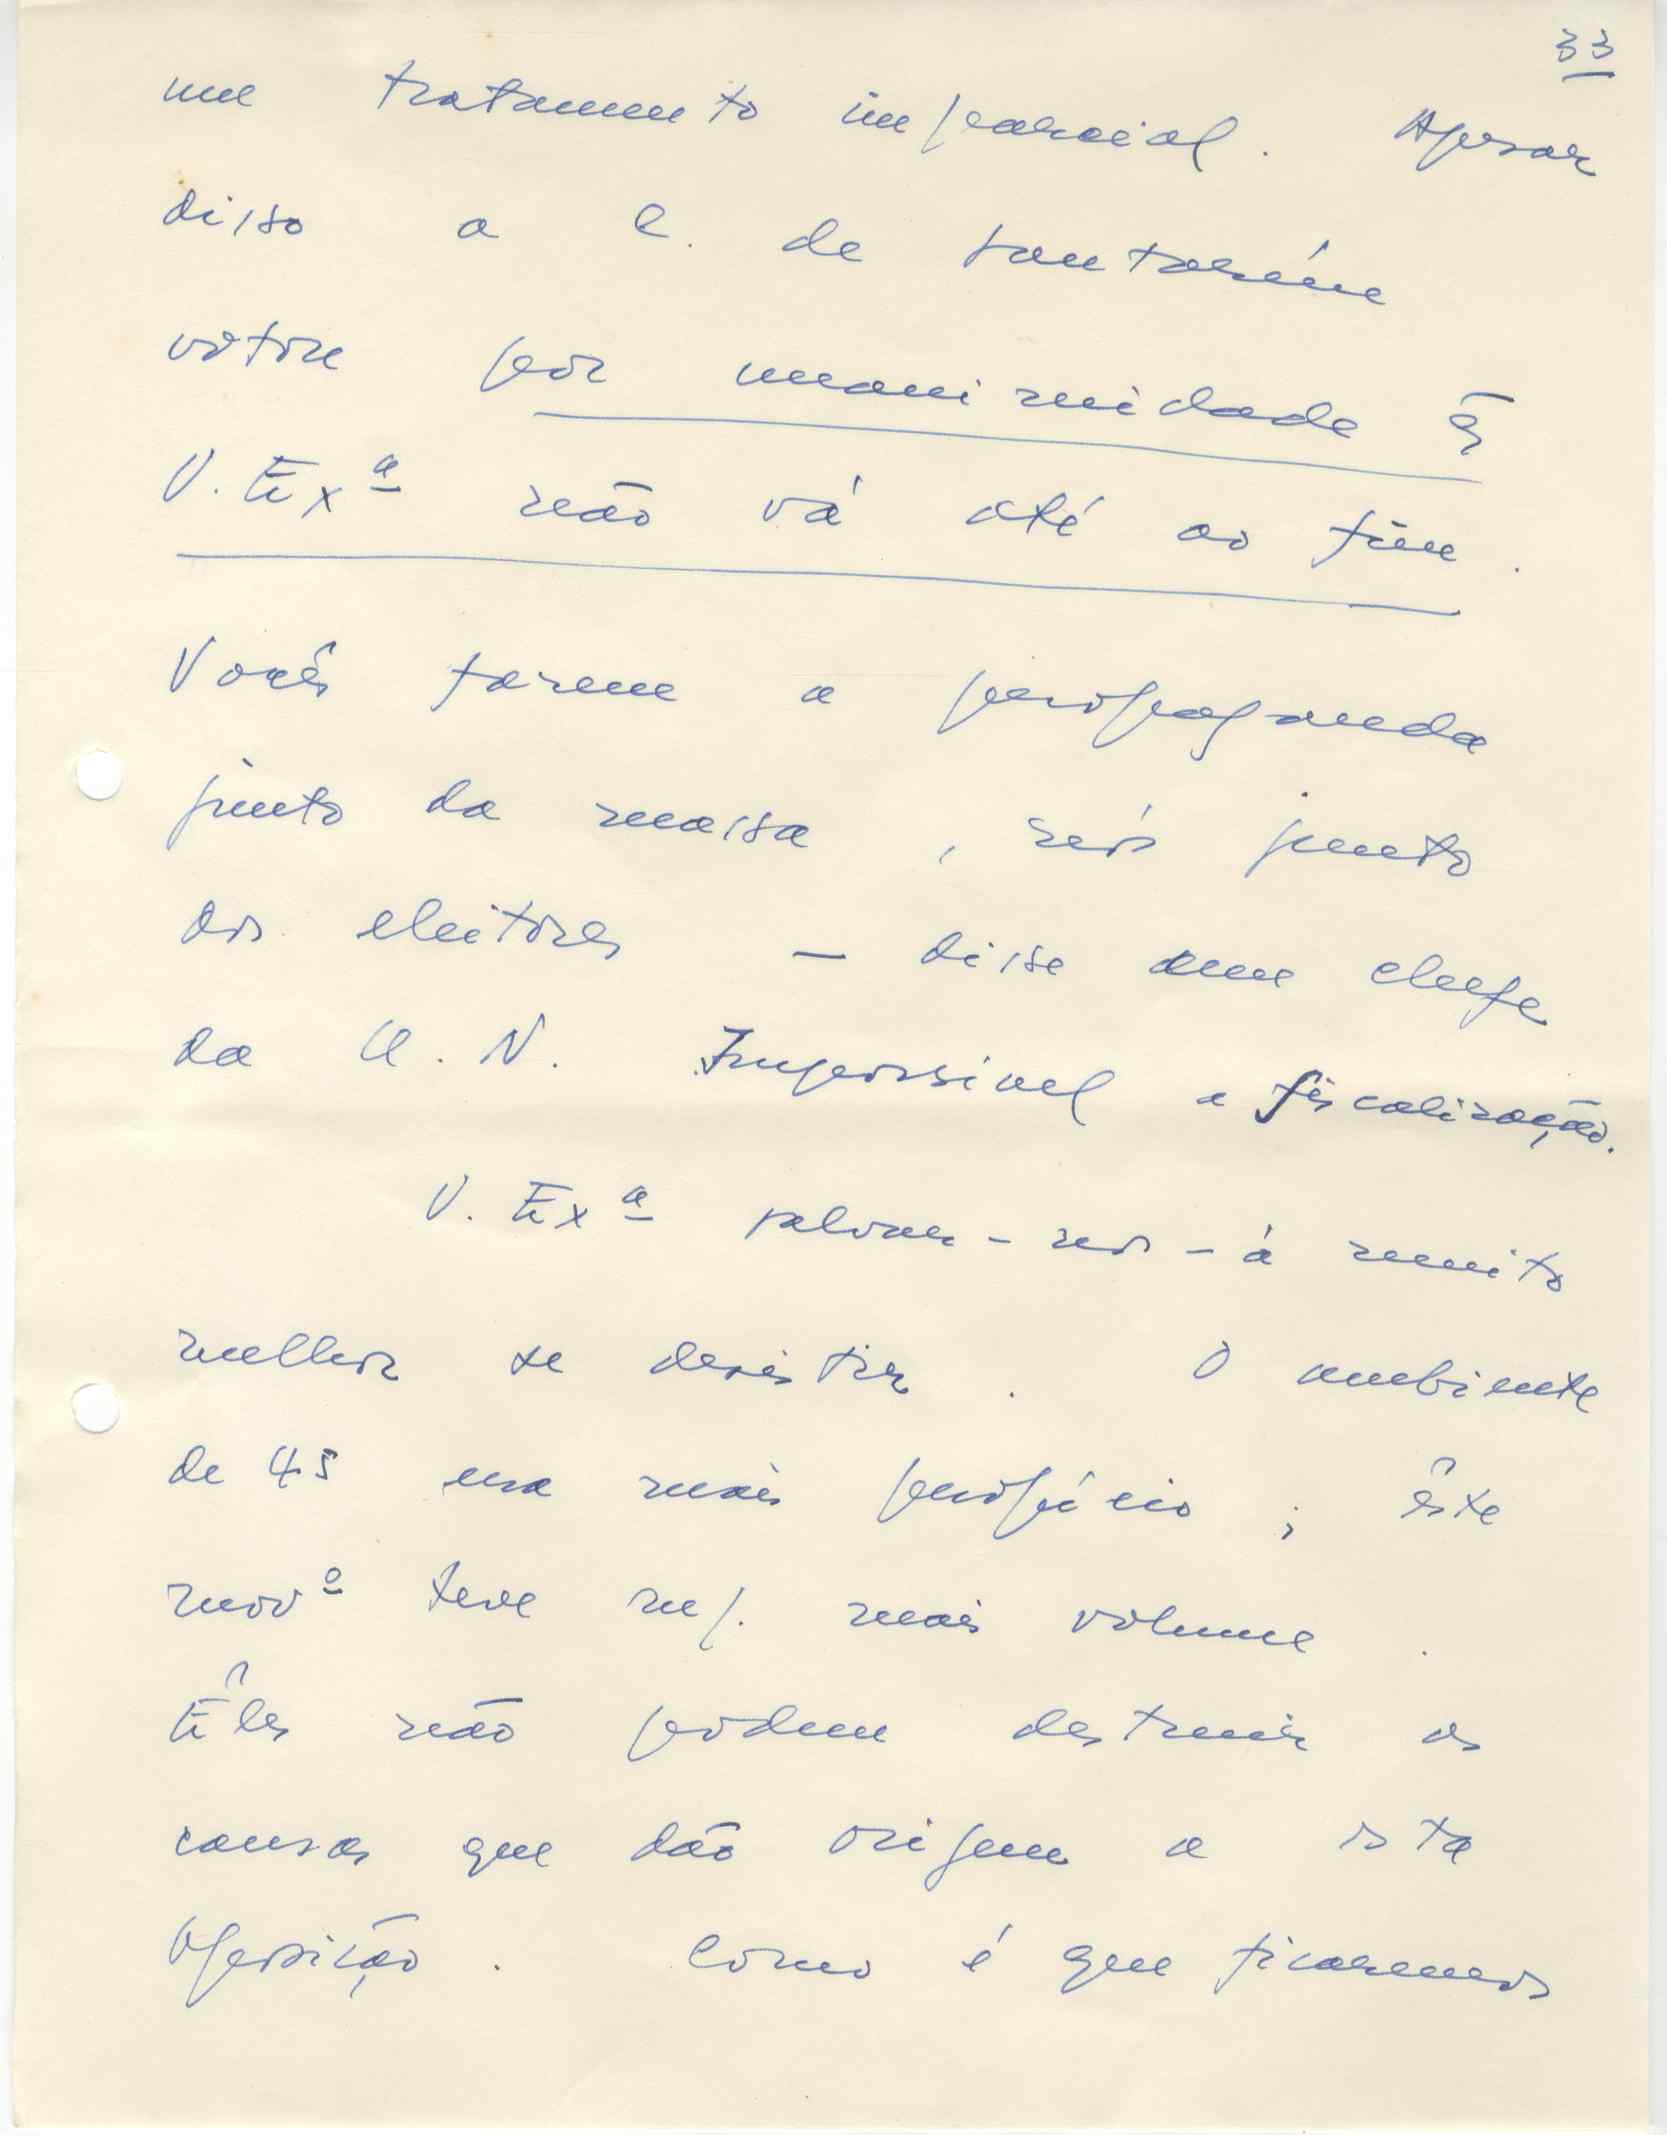 33
um tratamento imparcial. Apesar
disso a C. de Santarém
votou por unanimidade q̄
V. Exª não vá até ao fim.
Vocês fazem a propaganda
junto da massa, nós junto
dos eleitores — disse um chefe
da U. N. Impossivel a fiscalização.
V. Exª salvar-nos-á muito
melhor se desistir. O ambiente
de 45 era mais propício; êste
movº teve m/. mais volume.
Êles não podem destruir as
causas que dão origem a esta
Oposição. Como é que ficaremos